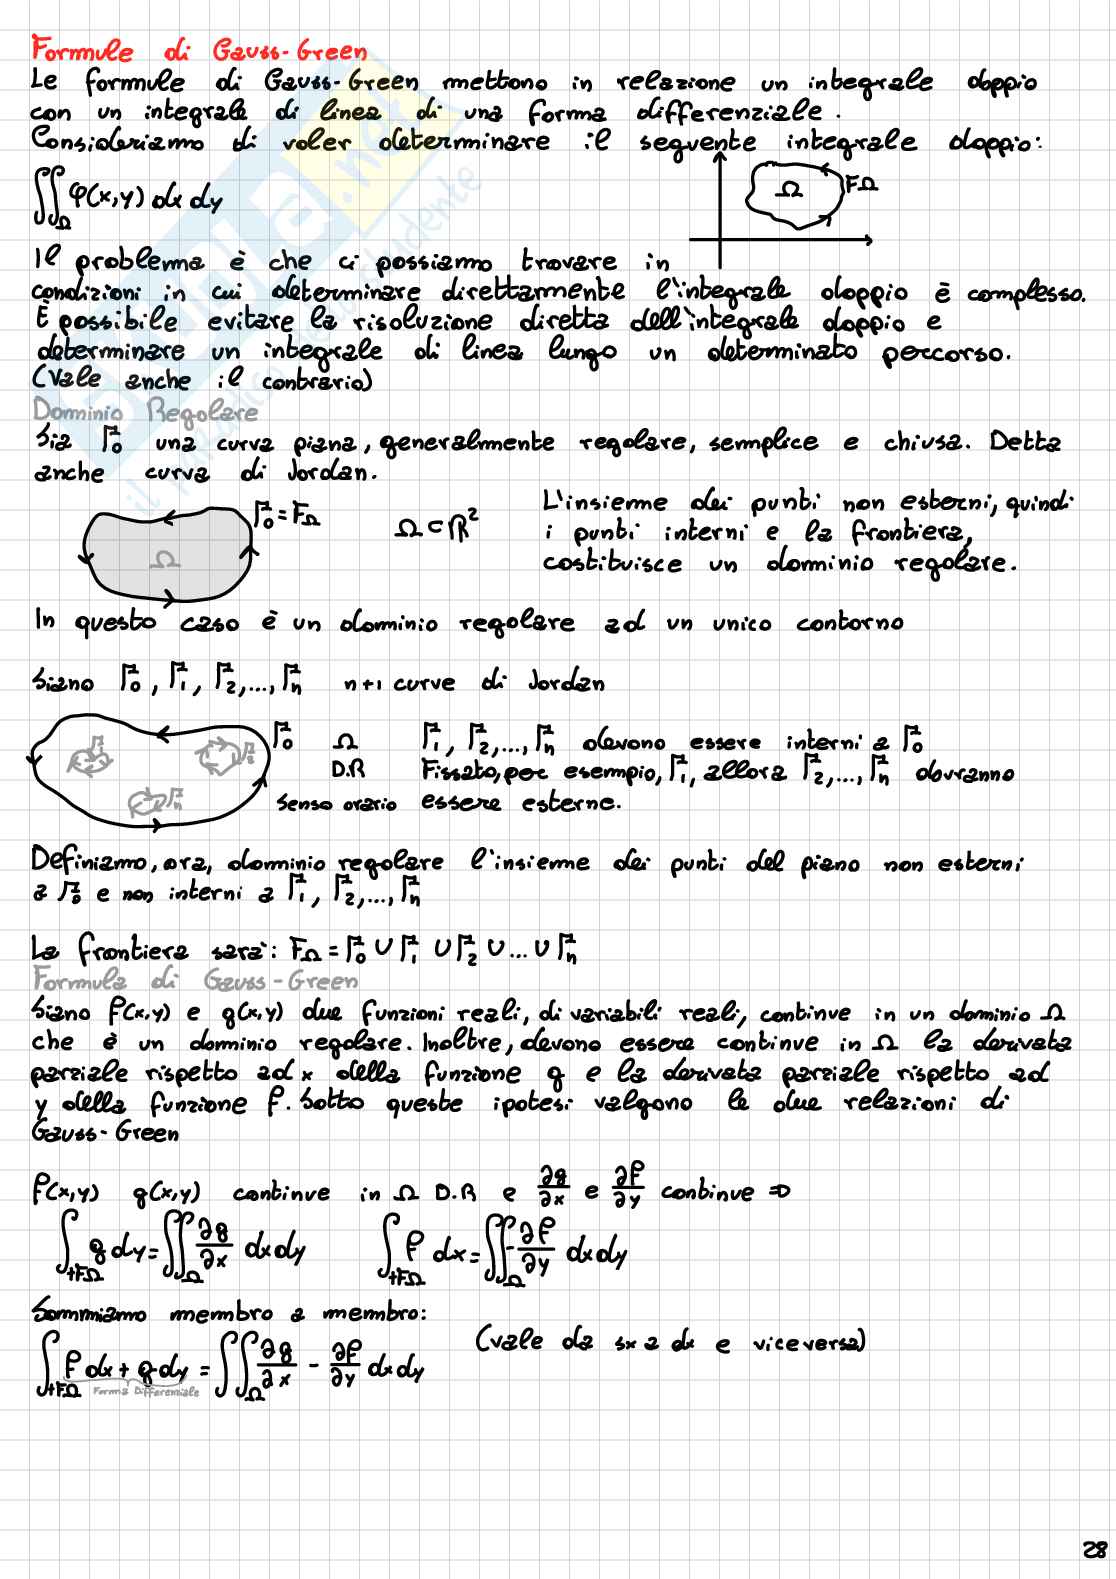 Formule di Gauss-Green
Le formule di Gauss-Green mettono in relazione un integrale doppio
con un integrale di linea di una forma differenziale.
Consideriamo di voler determinare il seguente integrale doppio:
∬_Ω φ(x,y) dx dy
Ω FΩ
Il problema è che ci possiamo trovare in
condizioni in cui determinare direttamente l'integrale doppio è complesso.
È possibile evitare la risoluzione diretta dell'integrale doppio e
determinare un integrale di linea lungo un determinato percorso.
(Vale anche il contrario)
Dominio Regolare
Sia Γ₀ una curva piana, generalmente regolare, semplice e chiusa. Detta
anche curva di Jordan.
Ω Γ₀ = FΩ Ω ⊂ ℝ²
L'insieme dei punti non esterni, quindi
i punti interni e la frontiera,
costituisce un dominio regolare.
In questo caso è un dominio regolare ad un unico contorno
Siano Γ₀, Γ₁, Γ₂,..., Γₙ n+1 curve di Jordan
Γ₀ Ω Γ₁, Γ₂,..., Γₙ devono essere interni a Γ₀
D.R Fissato, per esempio, Γ₁, allora Γ₂,..., Γₙ dovranno
senso orario essere esterne.
Γ₁ Γ₂ Γₙ
Definiamo, ora, dominio regolare l'insieme dei punti del piano non esterni
a Γ₀ e non interni a Γ₁, Γ₂,..., Γₙ
La frontiera sarà: FΩ = Γ₀ ∪ Γ₁ ∪ Γ₂ ∪ ... ∪ Γₙ
Formula di Gauss-Green
Siano f(x,y) e g(x,y) due funzioni reali, di variabili reali, continue in un dominio Ω
che è un dominio regolare. Inoltre, devono essere continue in Ω la derivata
parziale rispetto ad x della funzione g e la derivata parziale rispetto ad
y della funzione f. Sotto queste ipotesi valgono le due relazioni di
Gauss-Green
f(x,y) g(x,y) continue in Ω D.R e ∂g/∂x e ∂f/∂y continue ⇒
∫_+FΩ g dy = ∬_Ω ∂g/∂x dx dy ∫_+FΩ f dx = ∬_Ω -∂f/∂y dx dy
Sommiamo membro a membro:
∫_+FΩ f dx + g dy = ∬_Ω ∂g/∂x - ∂f/∂y dx dy (vale da sx a dx e viceversa)
Forma Differenziale
28